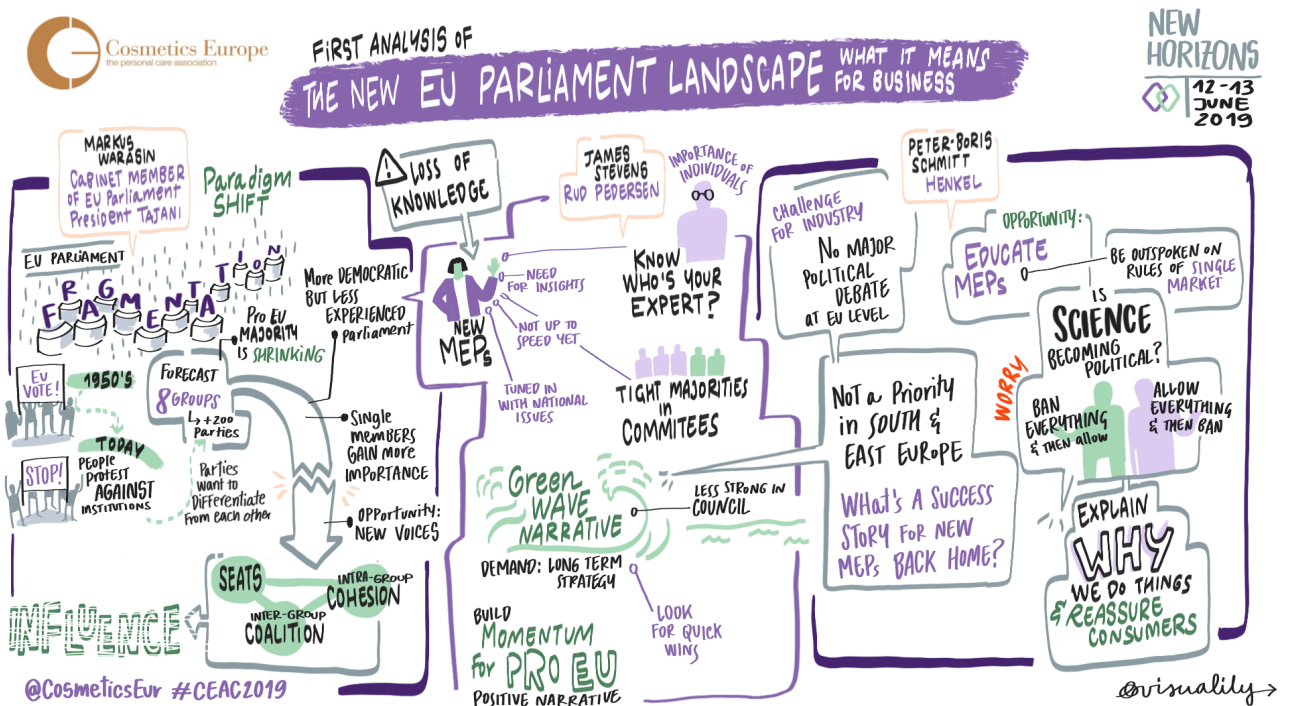 Cosmetics Europe
the personal care association
FIRST ANALYSIS OF
THE NEW EU PARLIAMENT LANDSCAPE
WHAT IT MEANS
FOR BUSINESS
NEW
HORIZONS
12-13
JUNE
2019
MARKUS
WARASIN
CABINET MEMBER
OF EU Parliament
President TAJANI
Paradigm
SHIFT
EU PARLIAMENT
FRAGMENTATION
Pro EU
MAJORITY
IS SHRINKING
More DEMOCRATIC
BUT LESS
EXPERIENCED
Parliament
EU
VOTE!
1950'S
TODAY
STOP!
PEOPLE
PROTEST
AGAINST
INSTITUTIONS
FORECAST
8 GROUPS
+200
Parties
Parties
WANT TO
DIFFERENTIATE
FROM EACH OTHER
Single
MEMBERS
GAIN MORE
IMPORTANCE
OPPORTUNITY:
NEW VOICES
SEATS
INTRA-GROUP
COHESION
INTER-GROUP
COALITION
INFLUENCE
@CosmeticsEur #CEAC2019
LOSS OF
KNOWLEDGE
JAMES
STEVENS
RUD PEDERSEN
IMPORTANCE OF
INDIVIDUALS
NEW
MEPs
NEED
FOR INSIGHTS
NOT UP TO
SPEED YET
TUNED IN
WITH NATIONAL
ISSUES
KNOW
WHO'S YOUR
EXPERT?
TIGHT MAJORITIES
IN
COMMITEES
Green
WAVE
NARRATIVE
LESS STRONG IN
COUNCIL
DEMAND: LONG TERM
STRATEGY
LOOK
FOR QUICK
WINS
BUILD
MOMENTUM
for PRO EU
POSITIVE NARRATIVE
PETER-BORIS
SCHMITT
HENKEL
CHALLENGE
FOR INDUSTRY
NO MAJOR
POLITICAL
DEBATE
AT EU LEVEL
NOT a Priority
in SOUTH &
EAST EUROPE
WHAT'S A SUCCESS
STORY FOR NEW
MEPs BACK HOME?
OPPORTUNITY:
EDUCATE
MEPs
BE OUTSPOKEN ON
RULES OF SINGLE
MARKET
IS
SCIENCE
BECOMING
POLITICAL?
WORRY
BAN
EVERYTHING
& THEN allow
ALLOW
EVERYTHING
& THEN BAN
EXPLAIN
WHY
WE DO THINGS
& REASSURE
CONSUMERS
@visualily